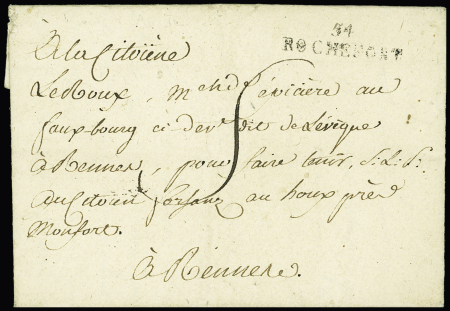 34
ROCHEFORT
A la Citoiëne
LeRoux, mchde éviciere au
faux bourg ci dev dit de Lévêque
à Rennes, pour faire tenir, S.L.P.
au Citoien au houx près
Monfort.
à Rennes.